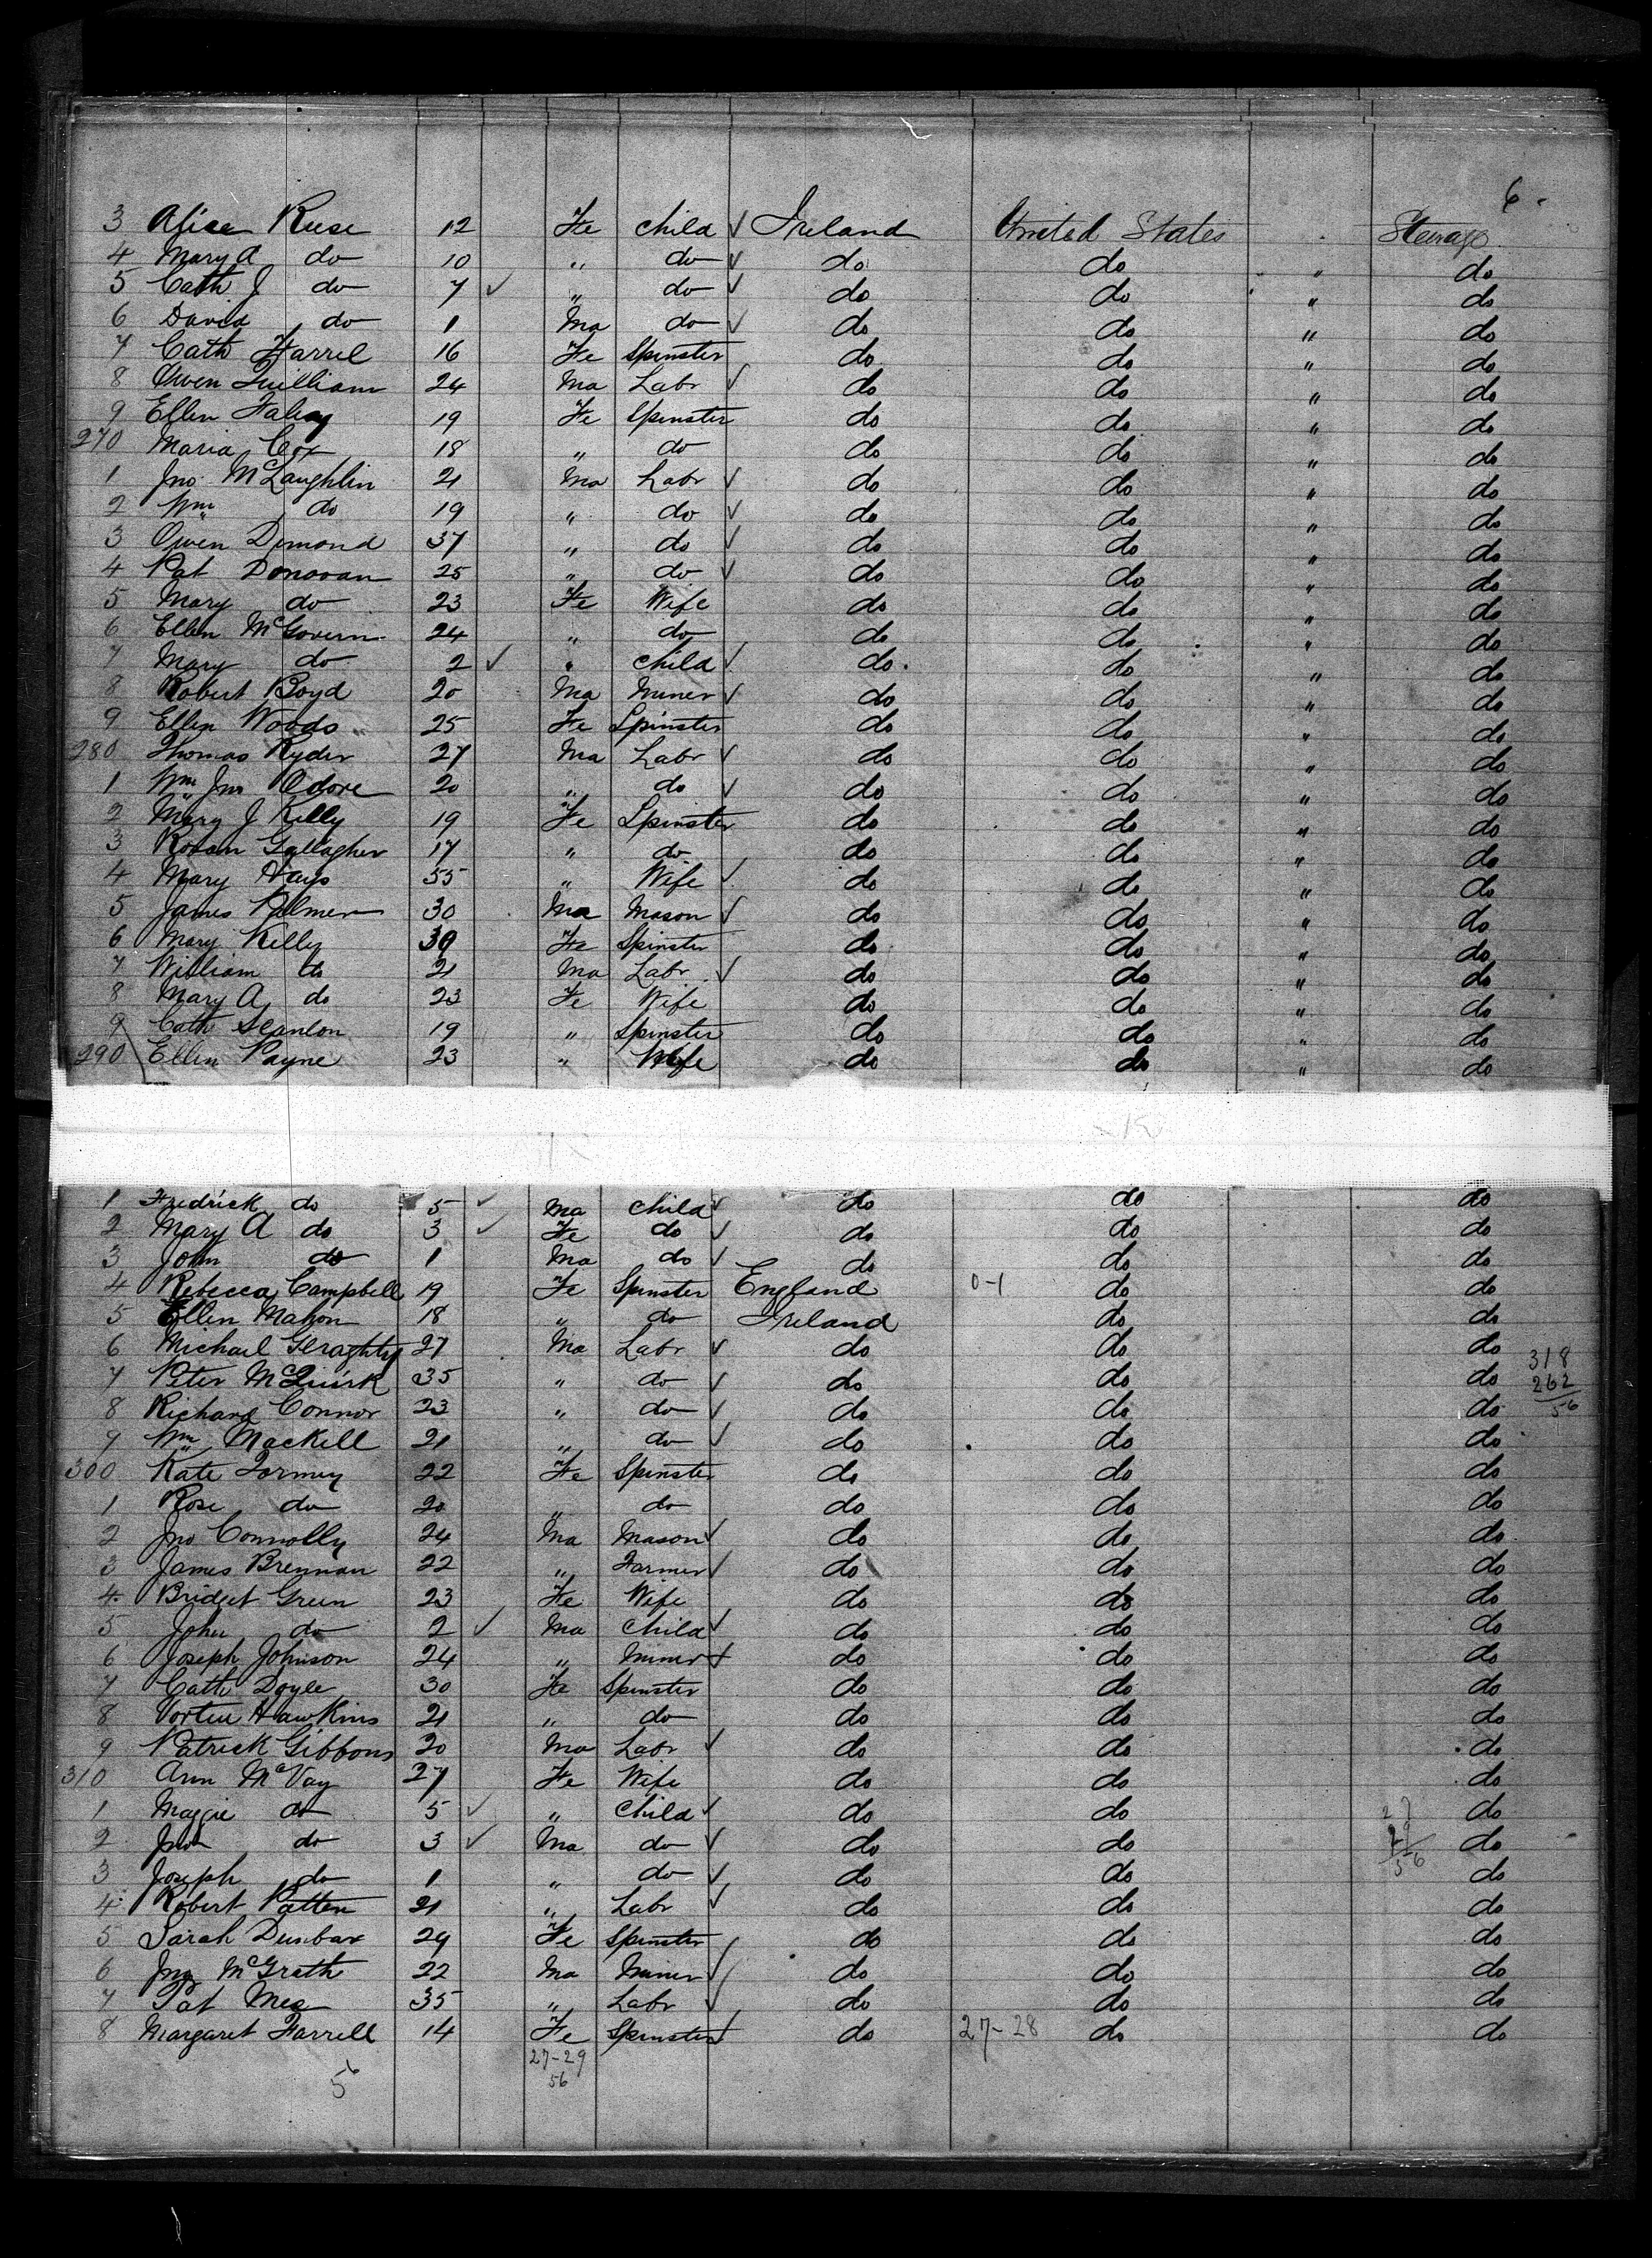 6.
3 Alice Reese 12 Fe Child ✓ Ireland United States Steerage
4 Mary A do 10 " do ✓ do do " do
5 Cath J do 7 ✓ " do ✓ do do " do
6 David do 1 Ma do ✓ do do " do
7 Cath Farrel 16 Fe Spinster do do " do
8 Owen Quilliam 24 Ma Labr ✓ do do " do
9 Ellen Fahey 19 Fe Spinster do do " do
270 Maria Cox 18 " do do do " do
1 Jno. McLaughlin 21 Ma Labr ✓ do do " do
2 Wm do 19 " do ✓ do do " do
3 Owen Dimond 37 " do ✓ do do " do
4 Pat Donovan 25 " do ✓ do do " do
5 Mary do 23 Fe Wife do do " do
6 Ellen McGovern 24 " do do do " do
7 Mary do 2 ✓ " Child ✓ do do " do
8 Robert Boyd 20 Ma Miner ✓ do do " do
9 Ellen Woods 25 Fe Spinster do do " do
280 Thomas Ryder 27 Ma Labr ✓ do do " do
1 Wm Jno Odore 20 " do ✓ do do " do
2 Mary J Kelly 19 Fe Spinster do do " do
3 Gallagher 17 " do do do " do
4 Mary Hays 55 " Wife ✓ do do " do
5 James Palmer 30 Ma Mason ✓ do do " do
6 Mary Kelly 39 Fe Spinster do do " do
7 William do 21 Ma Labr ✓ do do " do
8 Mary A do 23 Fe Wife do do " do
9 Cath Scanlon 19 " Spinster do do " do
290 Ellen Payne 23 " Wife do do " do
1 Fredrick do 5 ✓ Ma Child ✓ do do do
2 Mary A do 3 ✓ Fe do ✓ do do do
3 John do 1 Ma do ✓ do do do
4 Rebecca Campbell 19 Fe Spinster England 0-1 do do
5 Ellen Mahon 18 " do Ireland do do
6 Michael Geraghty 27 Ma Labr ✓ do do do 318
7 Peter McQuirk 35 " do ✓ do do do 262
8 Richard Connor 23 " do ✓ do do do 56
9 Wm Mackell 21 " do ✓ do do do
300 Kate Tormey 22 Fe Spinster do do do
1 Rose do 20 " do do do do
2 Jno Connolly 24 Ma Mason ✓ do do do
3 James Brennan 22 " Farmer ✓ do do do
4 Bridget Green 23 Fe Wife do do do
5 John do 2 ✓ Ma Child ✓ do do do
6 Joseph Johnson 24 " Miner ✓ do do do
7 Cath Doyle 30 Fe Spinster do do do
8 Hawkins 21 " do do do do
9 Patrick Gibbons 20 Ma Labr ✓ do do do
310 Ann McVay 27 Fe Wife do do do
1 Maggie do 5 ✓ " Child ✓ do do 27 do
2 Jno do 3 ✓ Ma do ✓ do do 29 do
3 Joseph do 1 " do ✓ do do 56 do
4 Robert Patten 21 " Labr ✓ do do do
5 Sarah Dunbar 24 Fe Spinster do do do
6 Jno McGrath 22 Ma Miner ✓ do do do
7 Pat Mea 35 " Labr ✓ do do do
8 Margaret Farrell 14 Fe Spinster ✓ do 27-28 do do
27-29
56 56